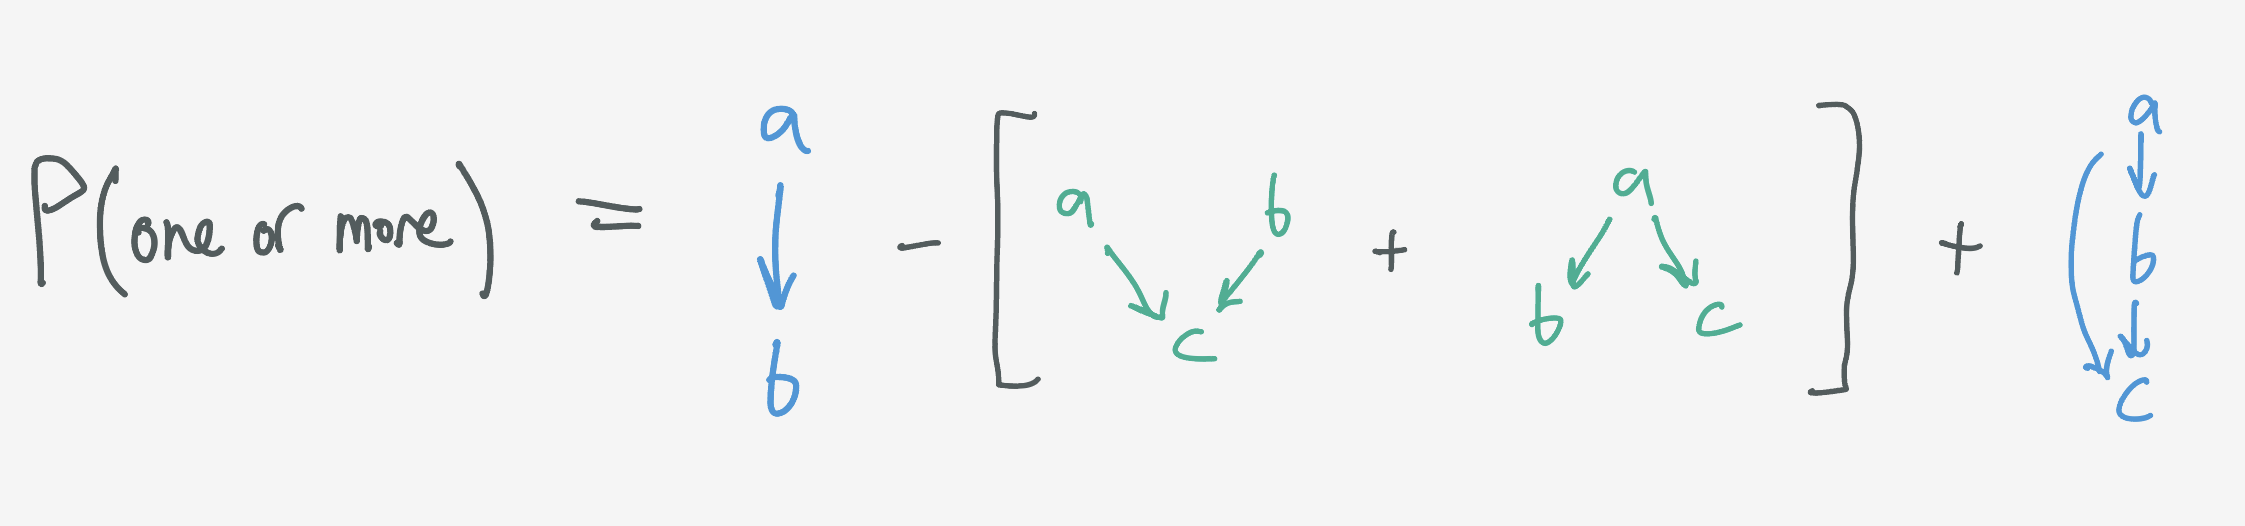 P(one or more) = a b - [ a b c + a b c ] + a b c